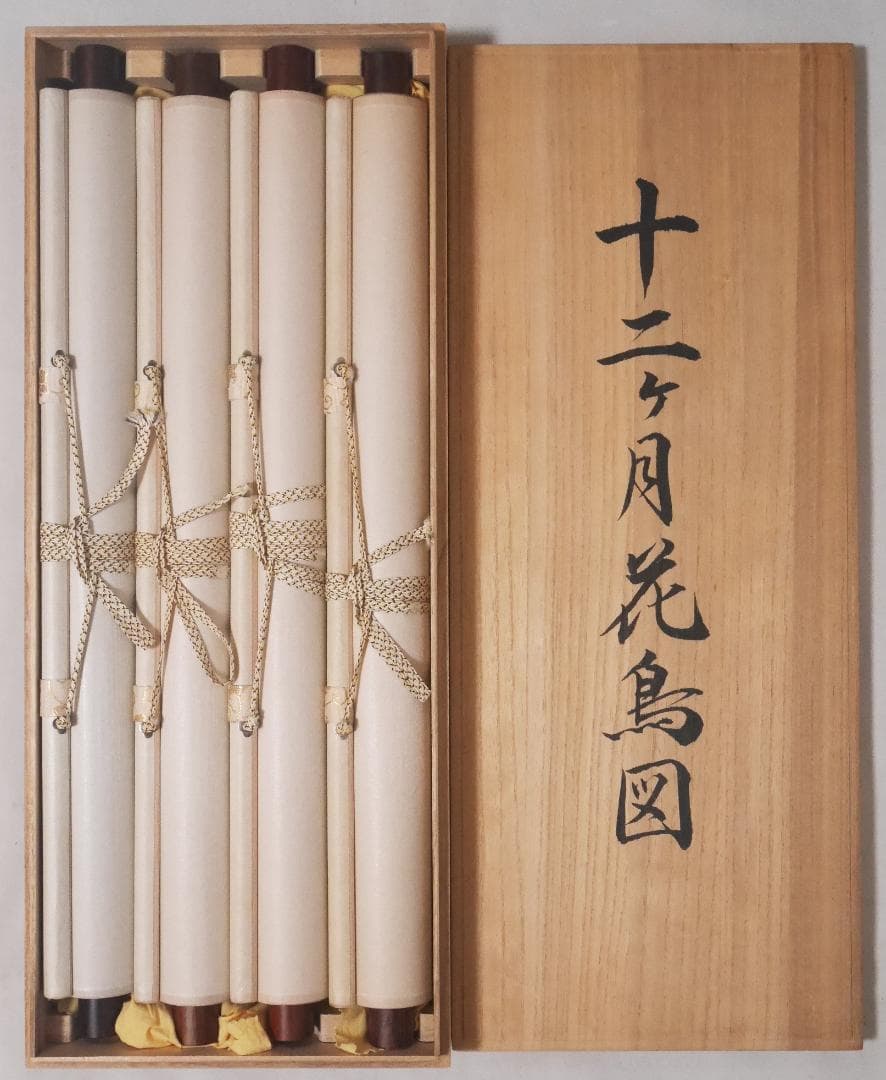 十二ヶ月花鳥図